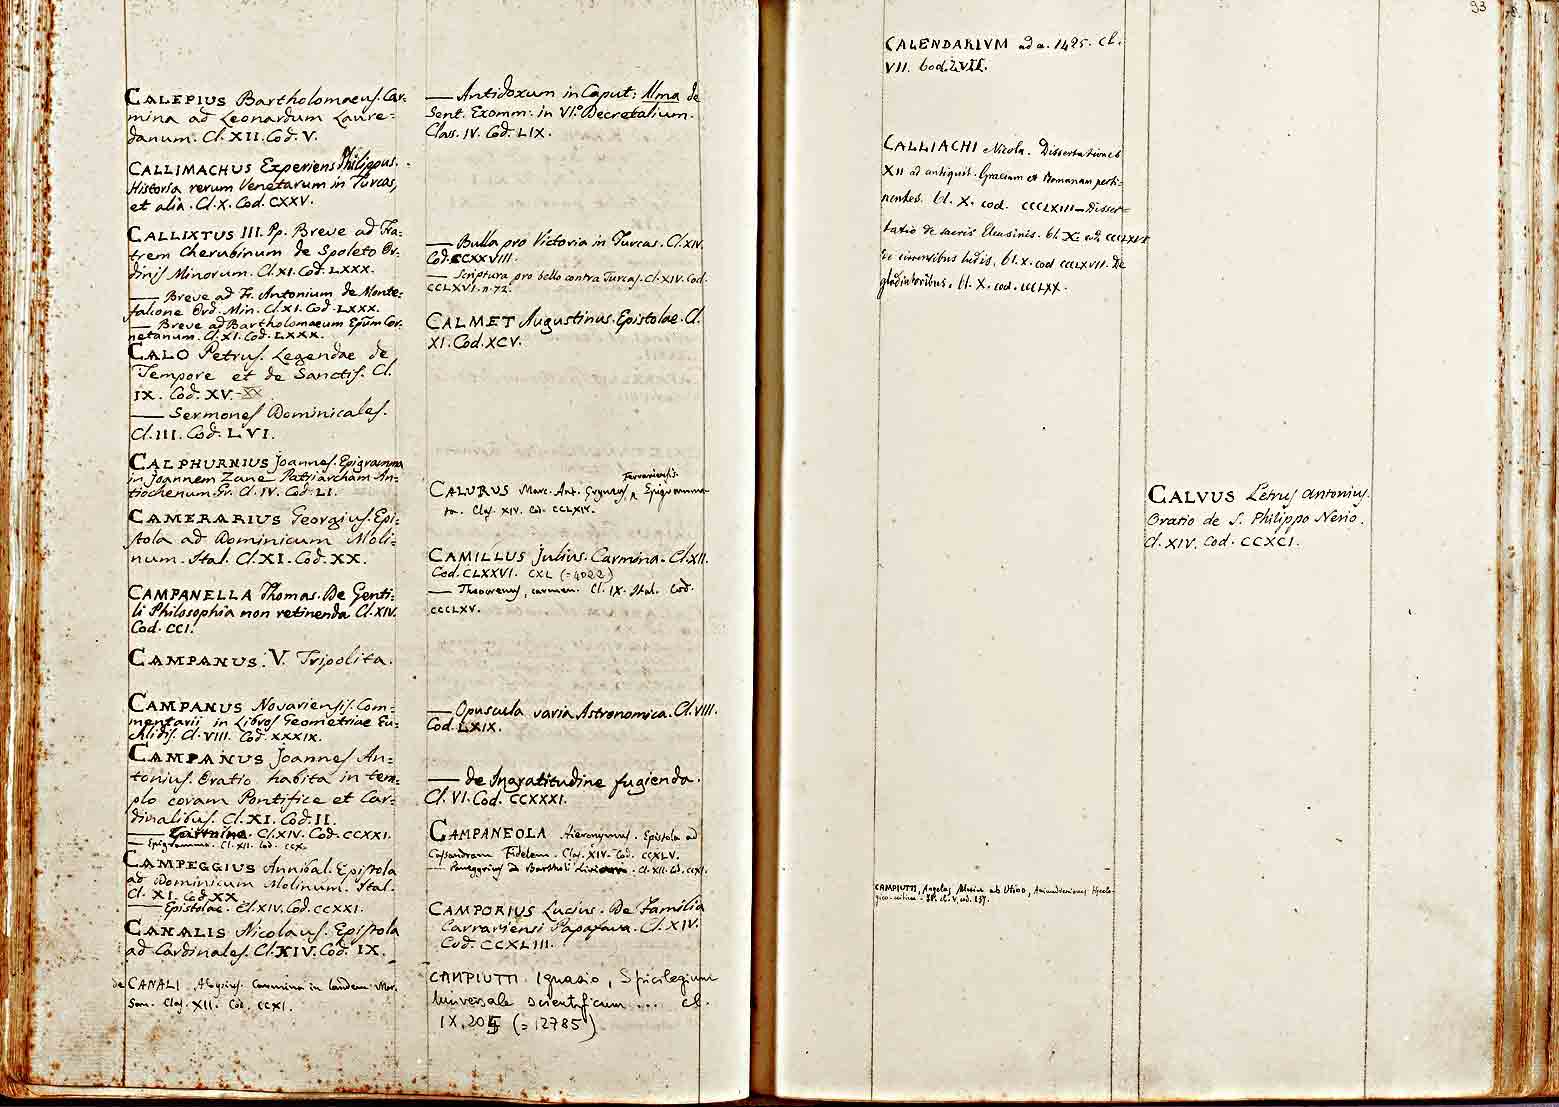 CALEPIUS Bartholomaeus. Car=
mina ad Leonardum Laure=
danum. Cl. XII. Cod. V.
CALLIMACHUS Experiens Philippus.
Historia rerum Venetarum in Turcas,
et alia. Cl. X. Cod. CXXV.
CALLIXTUS III. Pp. Breve ad Fra=
trem Cherubinum de Spoleto Or=
dinis Minorum. Cl. XI. Cod. LXXX.
— Breve ad Fr. Antonium de Monte=
falcone Ord. Min. Cl. XI. Cod. LXXX.
— Breve ad Bartholomaeum Epum Cor=
netanum. Cl. XI. Cod. LXXX.
CALO Petrus. Legendae de
Tempore et de Sanctis. Cl.
IX. Cod. XV.-XX.
— Sermones Dominicales.
Cl. III. Cod. LVI.
CALPHURNIUS Joannes. Epigramma
in Joannem Zane Patriarcham An=
tiochenum. Gr. Cl. IV. Cod. LI.
CAMERARIUS Georgius. Epi=
stola ad Dominicum Moli=
num. Ital. Cl. XI. Cod. XX.
CAMPANELLA Thomas. De Genti=
li Philosophia non retinenda Cl. XIV.
Cod. CCI.
CAMPANUS. V. Tripolita.
CAMPANUS Novariensis. Com=
mentarii in Libros Geometriae Eu=
chlidis. Cl. VIII. Cod. XXXIX.
CAMPANUS Joannes An=
tonius. Oratio habita in tem=
plo coram Pontifice et Car=
dinalibus. Cl. XI. Cod. II.
— Carmina. Cl. XIV. Cod. CCXXI.
— Epigramma. Cl. XII. Cod. CCX.
CAMPEGGIUS Annibal. Epistola
ad Dominicum Molinum. Ital.
Cl. XI. Cod. XX
— Epistolae. Cl. XIV. Cod. CCXXI.
CANALIS Nicolaus. Epistola
ad Cardinales. Cl. XIV. Cod. IX.
de CANALI Aloysius Carmina in laudem Mar.
San. Clas. XII. Cod. CCXI.
— Antidoxum in Caput: Alma de
Sent. Exomm: in VI.º Decretalium.
Clas. IV. Cod. LIX.
— Bulla pro Victoria in Turcas. Cl. XIV.
Cod. CCXXVIII.
— Scriptura pro bello contra Turcas. Cl. XIV. Cod.
CCLXVI. n. 72.
CALMET Augustinus. Epistolae. Cl.
XI. Cod. XCV.
Ferrariensis
CALURUS Marc. Ant. Epigramma=
ta. Clas. XIV. Cod. CCLXIV.
CAMILLUS Julius. Carmina. Cl. XII.
Cod. CLXXVI. CXL (=4022)
— Theocrenus, carmen. Cl. IX. Ital. Cod.
CCCLXV.
— Opuscula varia Astronomica. Cl. VIII.
Cod. LXIX.
— de Ingratitudine fugienda.
Cl. VI. Cod. CCXXXI.
CAMPANEOLA Hieronymus. Epistola ad
Cassandram Fidelem. Clas. XIV. Cod. CCXLV.
— Panegyricus Bartholi Cl. XII. Cod. CCXI.
CAMPORIUS Lucius. De Familia
Carrariensi Papafava. Cl. XIV.
Cod. CCXLIII.
CAMPIUTTI Ignazio, Spicilegium
Universale scientificum ... cl.
IX, 205 (=12785)
93
CALENDARIVM ad a. 1495. Cl.
VII. Cod. LVII.
CALLIACHI Nicola. Dissertationes
XII ad antiquit. Graecam et Romanam perti=
nentes. Cl. X. cod. CCCLXIII — Disser=
tatio de sacris Eleusinis. Cl. X. cod. CCCLXVI
De circensibus ludis. Cl. X. cod CCCLXVII. De
gladiatoribus. Cl. X. cod. CCCLXX.
CALVUS Petrus Antonius.
Oratio de S. Philippo Nerio.
Cl. XIV. Cod. CCXCI.
CAMPIUTTI, Angelus Maria ab Utino, Animadversiones
critica. cl. V, cod. 157.